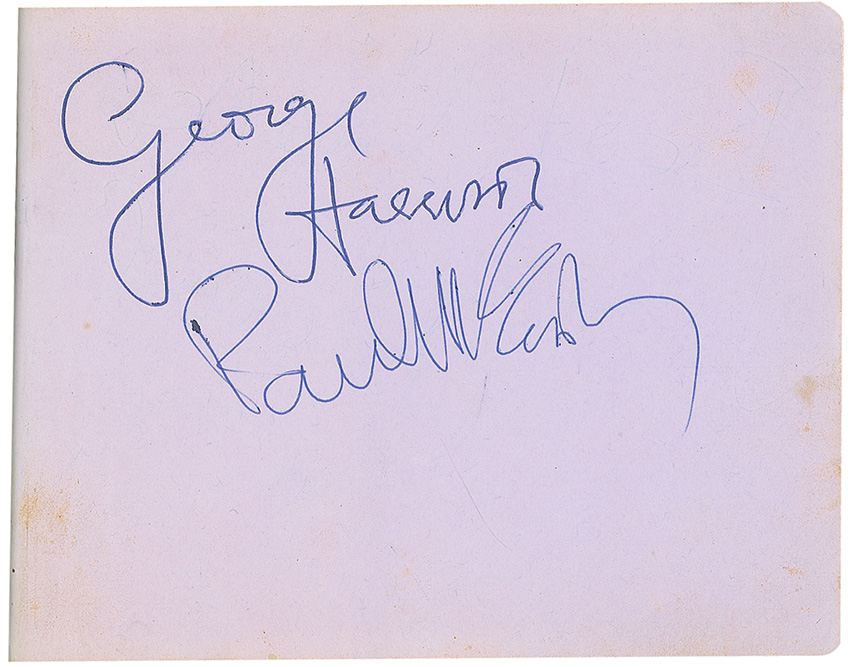 George
Harrison
Paul McCartney